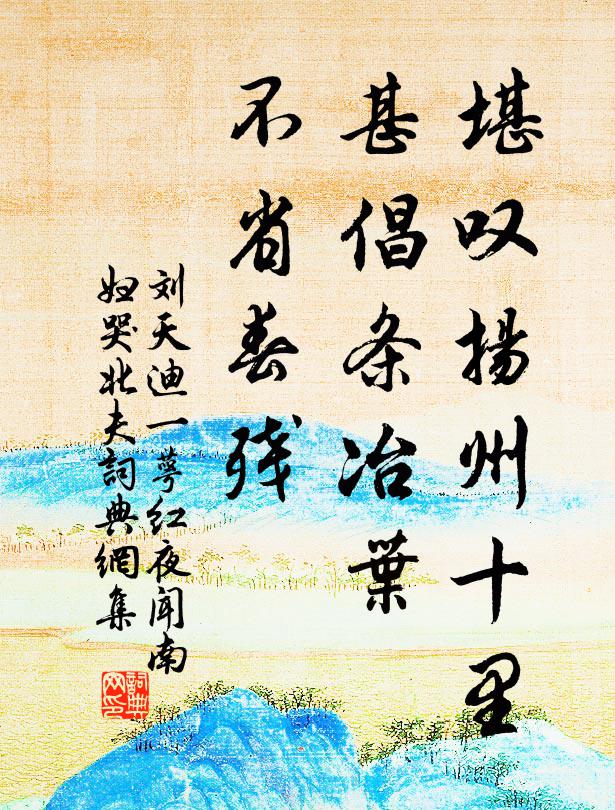 堪叹揚州十里
甚倡条冶葉
不省春残
刘天迪一萼红夜闻南
妇哭北夫詞典網集
詞典
网印